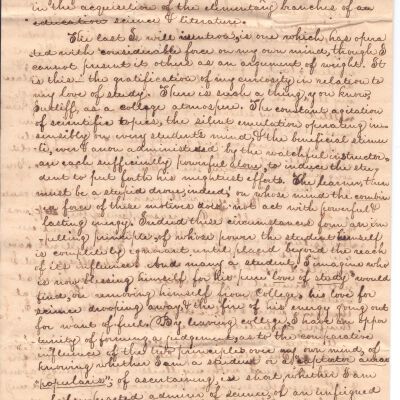 in the acquisition of the elementary branches of an
education science & literature.
The last I will mention, is one which, has opera
ted with considerable force on my own mind, though I
cannot present it to others as an argument of weight. It
is this – the gratification of my curiosity in relation to
my love of study. There is such a thing, you know,
as a college atmosphere. The constant agitation
of scientific topics, the silent emulation operating in-
sensibly on every student's mind, & the beneficial stimu
li, ever & anon administered by the watchful instructor
are each sufficiently powerful alone, to induce the stu-
dent to put forth his mightiest efforts. The learner then
must be a stupid drone, indeed, on whose mind the combin
force of these motives does not act with powerful &
lasting energy. Indeed these circumstances form an im-
pelling principle of whose power the student himself
is completely ignorant until placed beyond the reach
of its influence. And many a student, I imagine who
is now blessing himself for his pure love of study would
find, on removing himself from College, his love for
science drooping away & the fire of his energy going out
for want of fuel. By leaving college, I have an oppor
tunity of forming a judgement, as to the comparative
influence of the two principles over my own mind, of
knowing whether I am a student or a captator aurae
"popularis", of ascertaining, in short whether I am
admirer of science, of an unfeigned